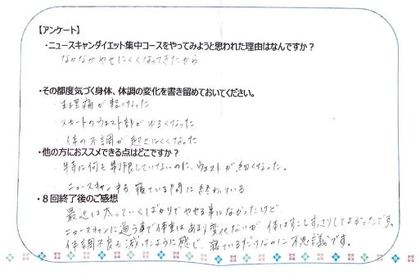 【アンケート】
・ニュースキャンダイエット集中コースをやってみようと思われた理由はなんですか？
なかなかやせにくくなってきたから
・その都度気づく身体、体調の変化を書き留めておいてください。
・生理痛が軽くなった
・スカートのウェスト部がゆるくなった
・体の不調が起きにくくなった
・他の方におススメできる点はどこですか？
特に何も制限していないのに、ウェストが細くなった。
ニュースキャンする寝ている間に終わっている
・８回終了後のご感想
最近は太っていくばかりでやせる事になかったけど
ニュースキャンに通う事で体重はあまり変化ないが 体はすこしすっきりしてよかったです。
体調不良も減ったように感じ、寝ているだけなのに不思議です。